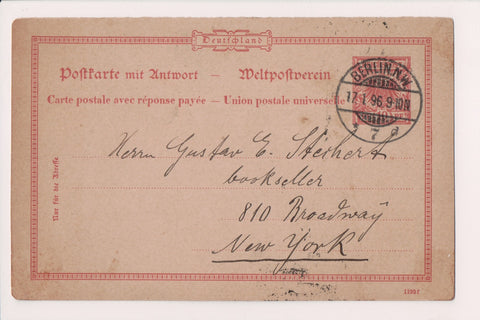 Deutschland
Postkarte mit Antwort – Weltpostverein
Carte postale avec réponse payée – Union postale universelle
BERLIN, N.W.
17.1.96. 9-10N
* 7 d
Nur für die Adresse
Herrn Gustav E. Stechert
bookseller
810 Broadway
New York